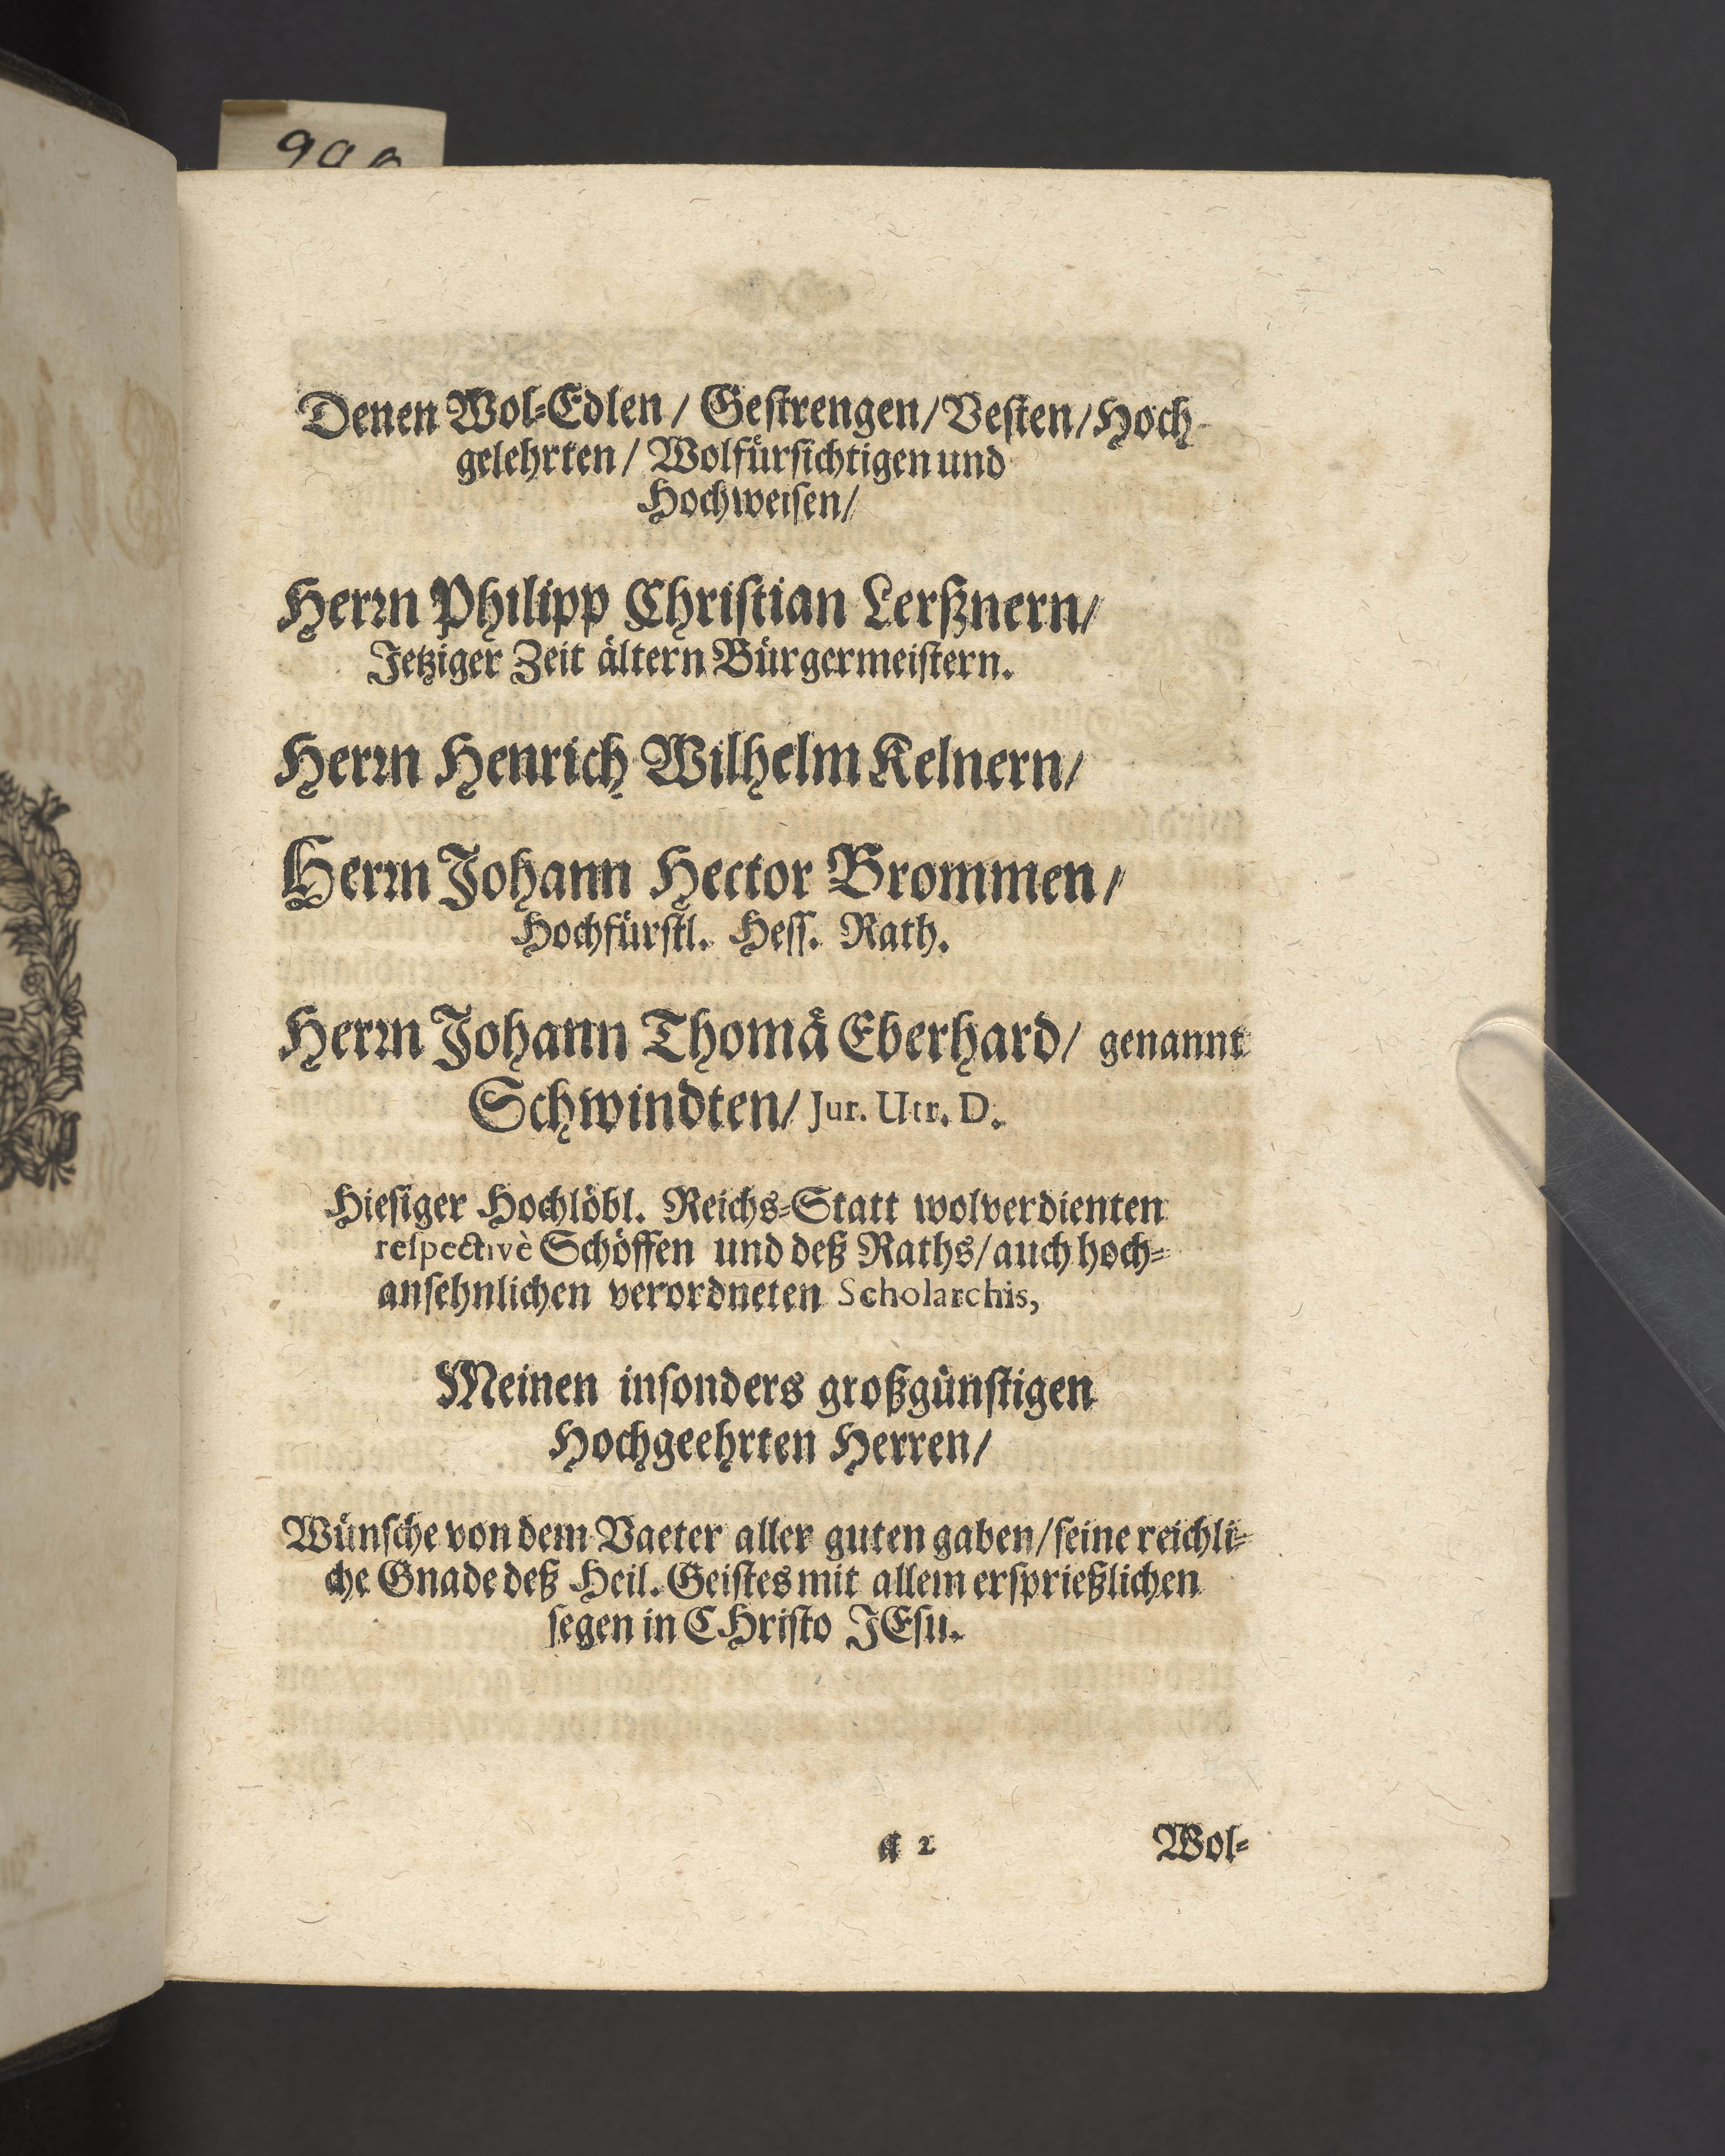 Denen Wol-Edlen / Gestrengen / Vesten / Hoch-
gelehrten / Wolfürsichtigen und
Hochweisen /
Herrn Philipp Christian Lerßnern /
Jetziger Zeit ältern Bürgermeistern.
Herrn Henrich Wilhelm Kelnern /
Herrn Johann Hector Brommen /
Hochfürstl. Hess. Rath.
Herrn Johann Thomä Eberhard / genannt
Schwindten / Jur. Utr. D.
Hiesiger Hochlöbl. Reichs-Statt wolverdienten
respectivè Schöffen und deß Raths / auch hoch-
ansehnlichen verordneten Scholarchis,
Meinen insonders großgünstigen
Hochgeehrten Herren /
Wünsche von dem Vaeter aller guten gaben / seine reichli-
che Gnade deß Heil. Geistes mit allem ersprießlichen
segen in CHristo JEsu.
a 2 Wol-